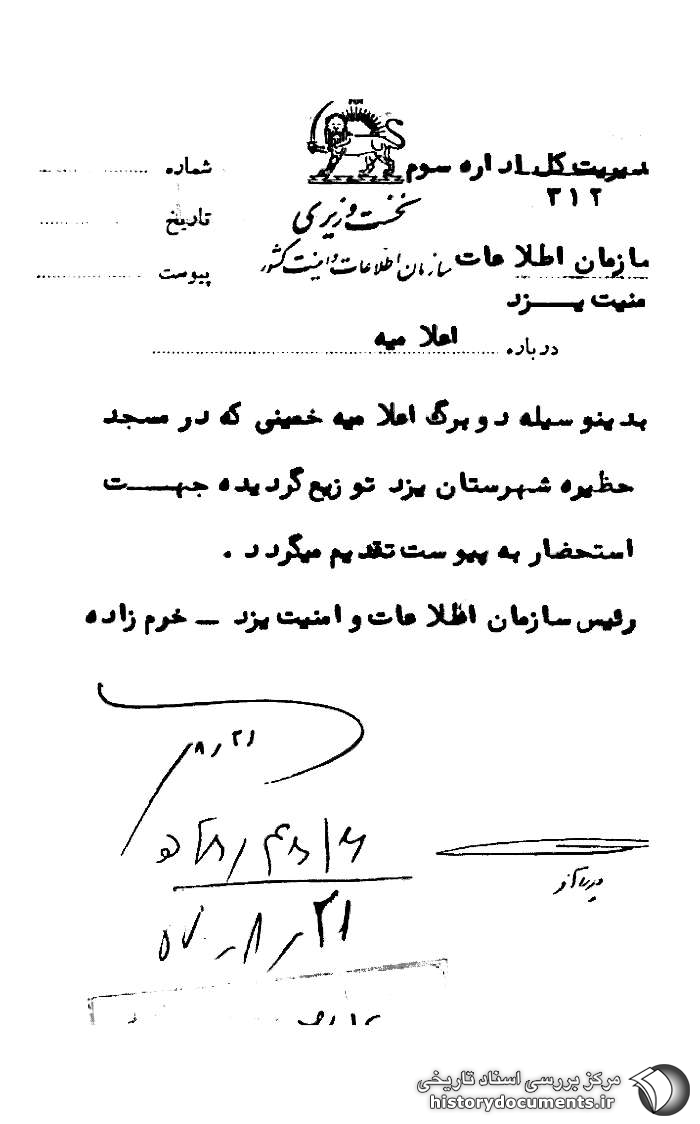 مدیریت کل اداره سوم
۳۱۲
شماره
نخست وزیری
تاریخ
سازمان اطلاعات
سازمان اطلاعات و امنیت کشور
پیوست
منیت یــزد
درباره
اعلامیه
بدینوسیله دو برگ اعلامیه خمینی که در مسجد
حظیره شهرستان یزد توزیع گردیده جهــت
استحضار به پیوست تقدیم میگردد .
رئیس سازمان اطلاعات و امنیت یزد ــ خرم زاده
۸٫۲۱
۲۱ ر ۸ ر ۵۷
مرکز بررسی اسناد تاریخی
historydocuments.ir